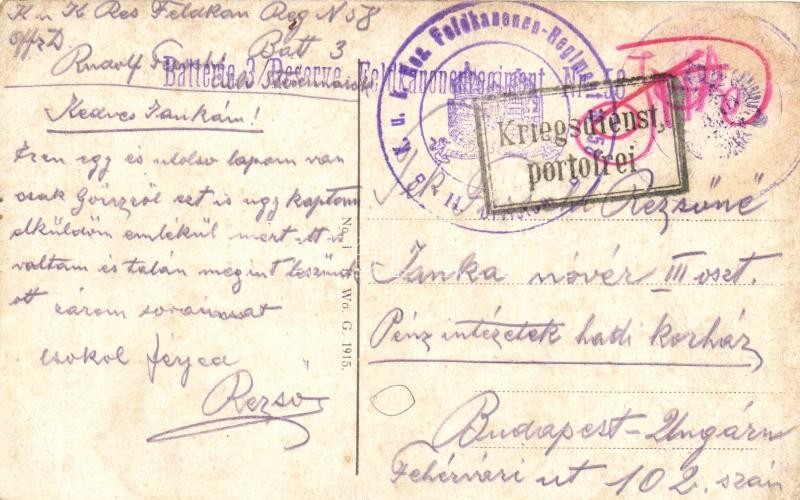 K u K Res Feldkan Reg N 58
Offz D Batt 3
Rudolf
Batterie 3/Reserve Feldkanonenregiment Nr. 58
Kedves Jankám!
Ezen egy és utolso lapom van
csak Görzről ezt is ugy kaptam
elküldöm emlékül mert itt is
voltam és talán megint leszünk
ott zárom soraimat
csokol férjed
Rezsö
No. 1 W. Wo. G. 1915.
K. u. k. Res. Feldkanonen-Regiment Nr. 58
Kriegsdienst,
portofrei
Rezsőné
Janka nővér III oszt.
Pénz intézetek hadi korház
Budapest-Ungarn
Fehérvári ut 102. szám